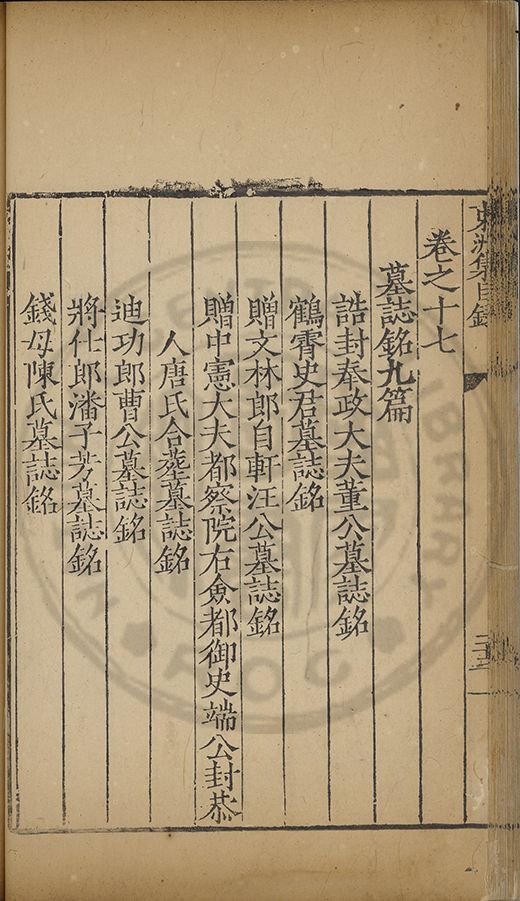 東洲集目錄
卷之十七
墓誌銘九篇
誥封奉政大夫董公墓誌銘
鶴霄史君墓誌銘
贈文林郎自軒汪公墓誌銘
贈中憲大夫都察院右僉都御史端公封恭
人唐氏合葬墓誌銘
迪功郎曹公墓誌銘
將仕郎潘子芳墓誌銘
錢母陳氏墓誌銘